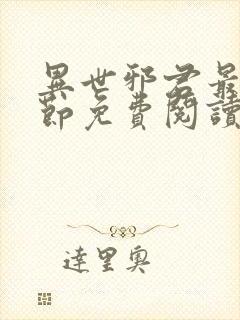 異世邪君最
節免費閱讀
達里奧